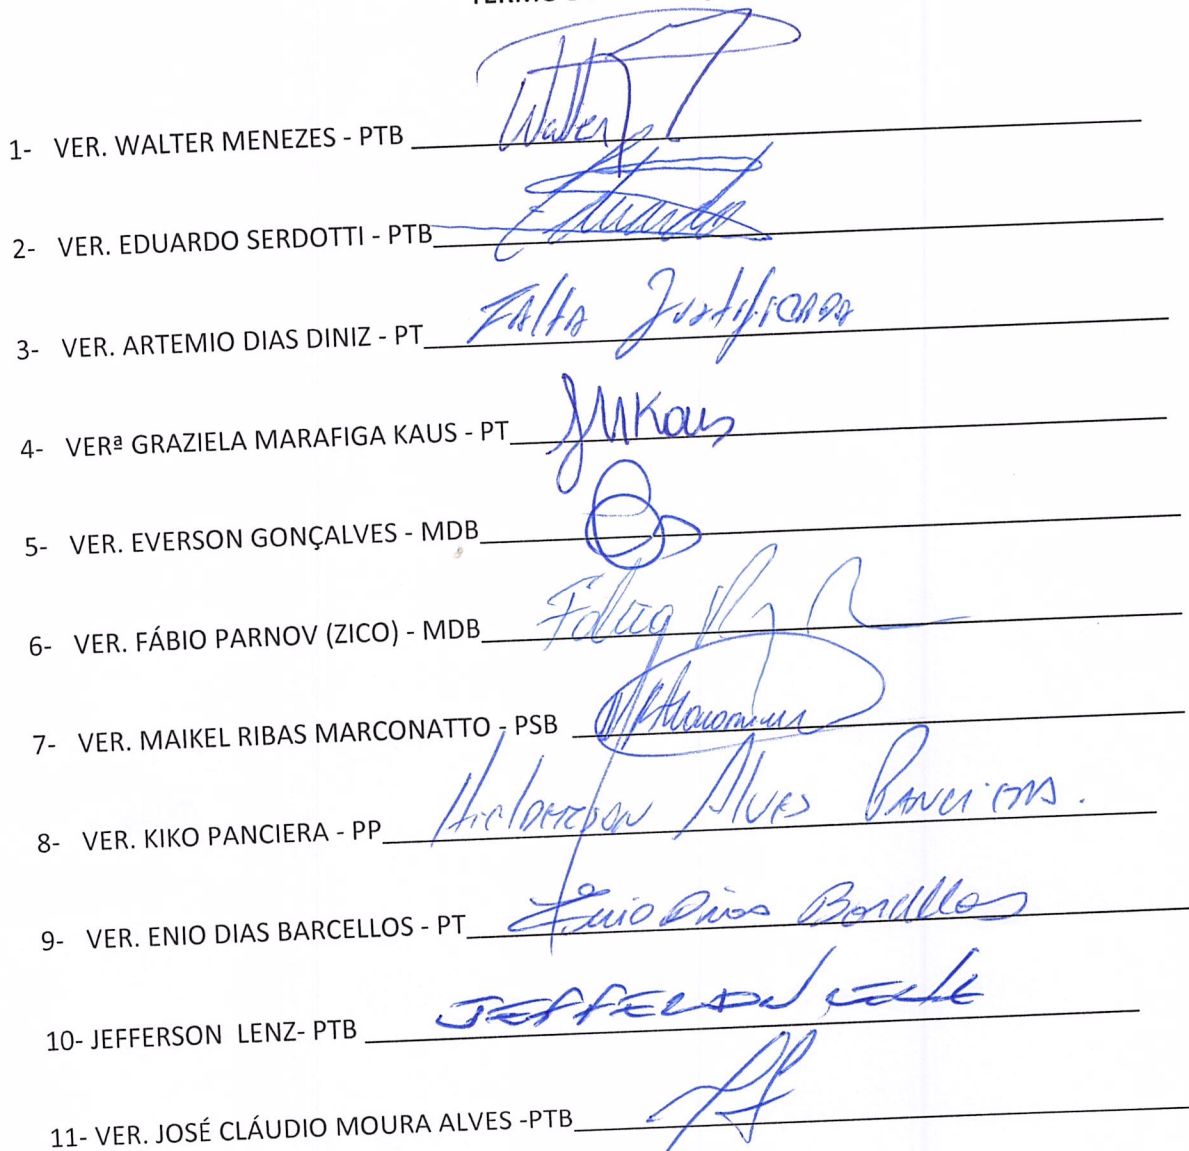 1- VER. WALTER MENEZES - PTB Walter
2- VER. EDUARDO SERDOTTI - PTB Eduardo
3- VER. ARTEMIO DIAS DINIZ - PT Falta Justificada
4- VERª GRAZIELA MARAFIGA KAUS - PT GMKaus
5- VER. EVERSON GONÇALVES - MDB
6- VER. FÁBIO PARNOV (ZICO) - MDB
7- VER. MAIKEL RIBAS MARCONATTO - PSB
8- VER. KIKO PANCIERA - PP Alves Panciera.
9- VER. ENIO DIAS BARCELLOS - PT Enio Dias Barcellos
10- JEFFERSON LENZ- PTB JEFFERSON
11- VER. JOSÉ CLÁUDIO MOURA ALVES -PTB